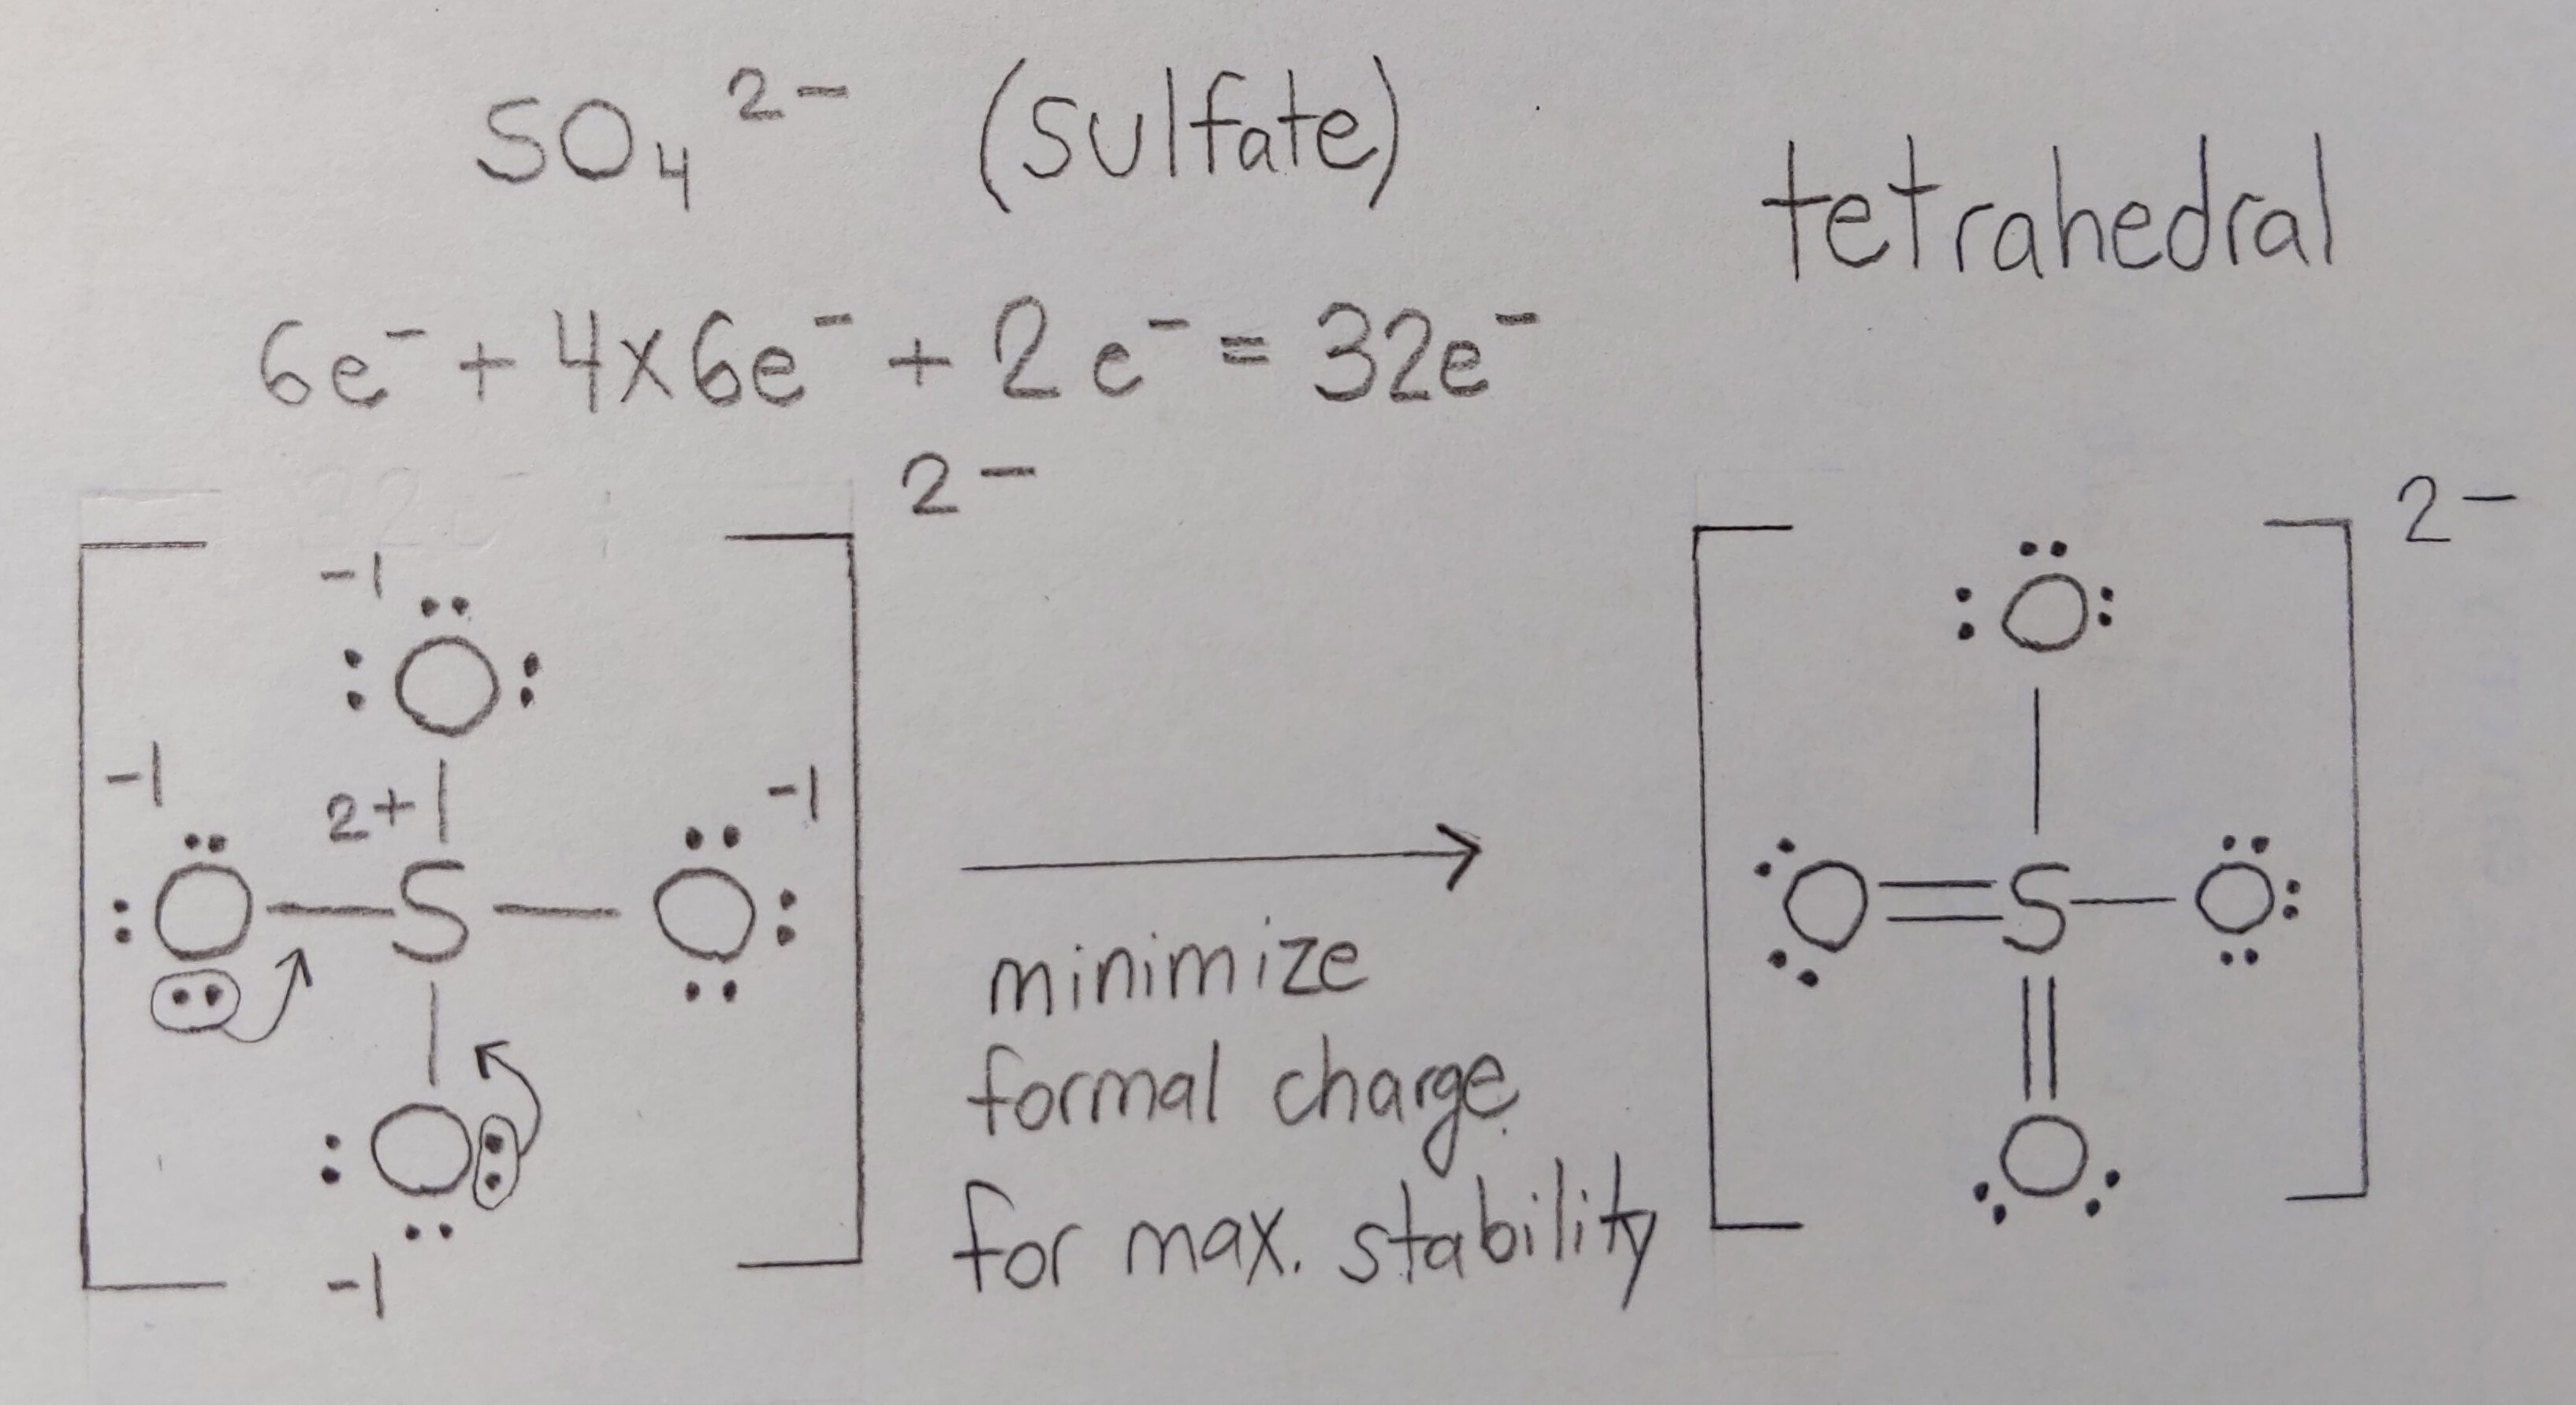 SO₄²⁻ (sulfate)
tetrahedral
6e⁻ + 4x6e⁻ + 2e⁻ = 32e⁻
2-
2-
-1
O
O
-1
-1
2+
O — S — O
O = S — O
minimize
formal charge
for max. stability
O
O
-1